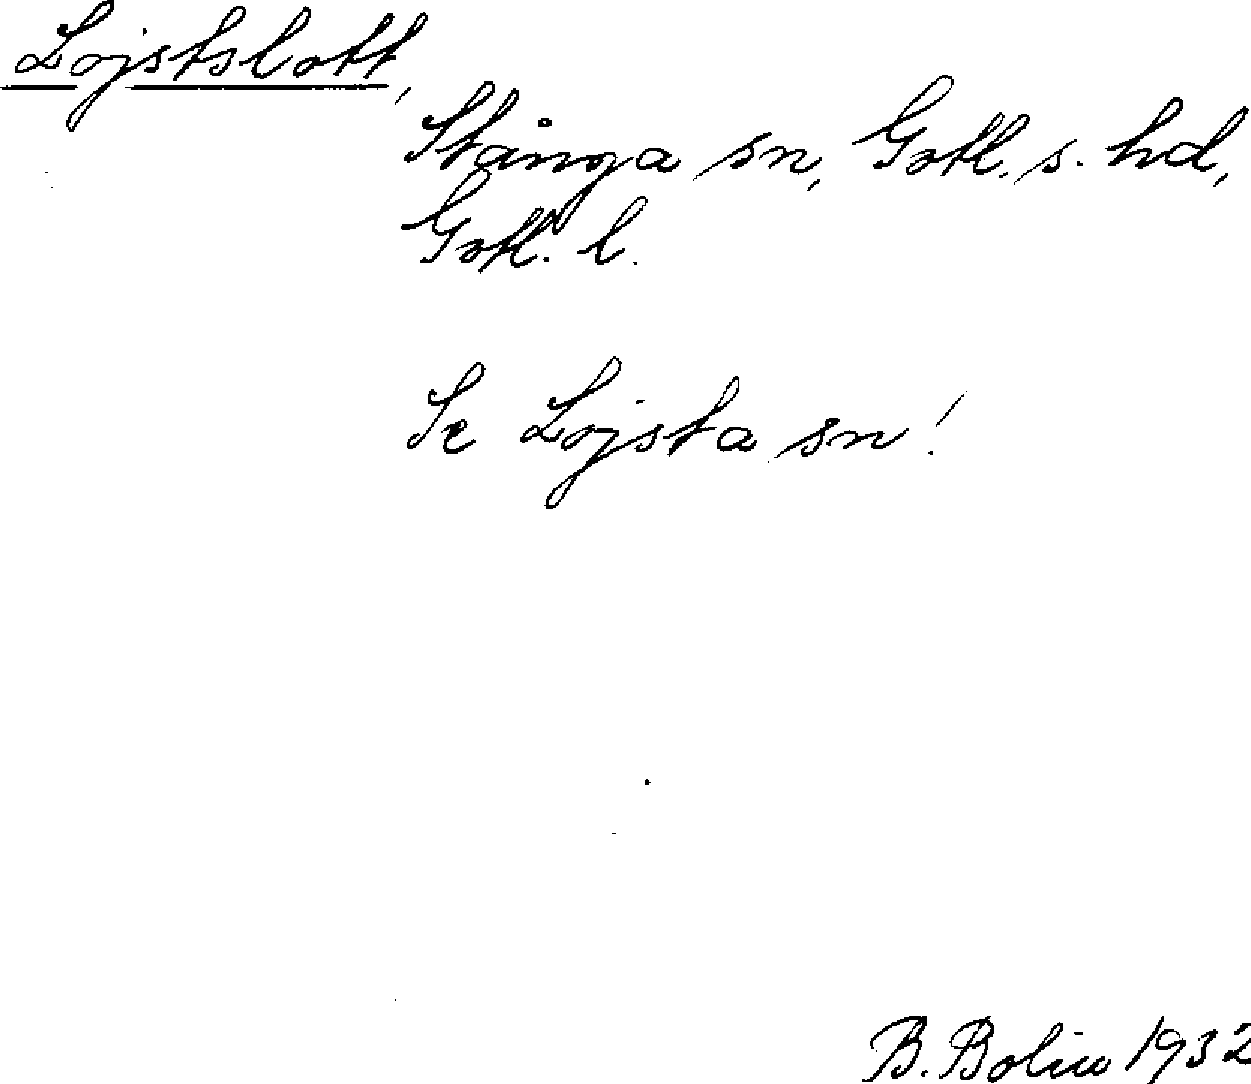 Lojstslott,
Stånga sn, Gotl. s. hd,
Gotl. l.
Se Lojsta sn!
B. Bolin 1932